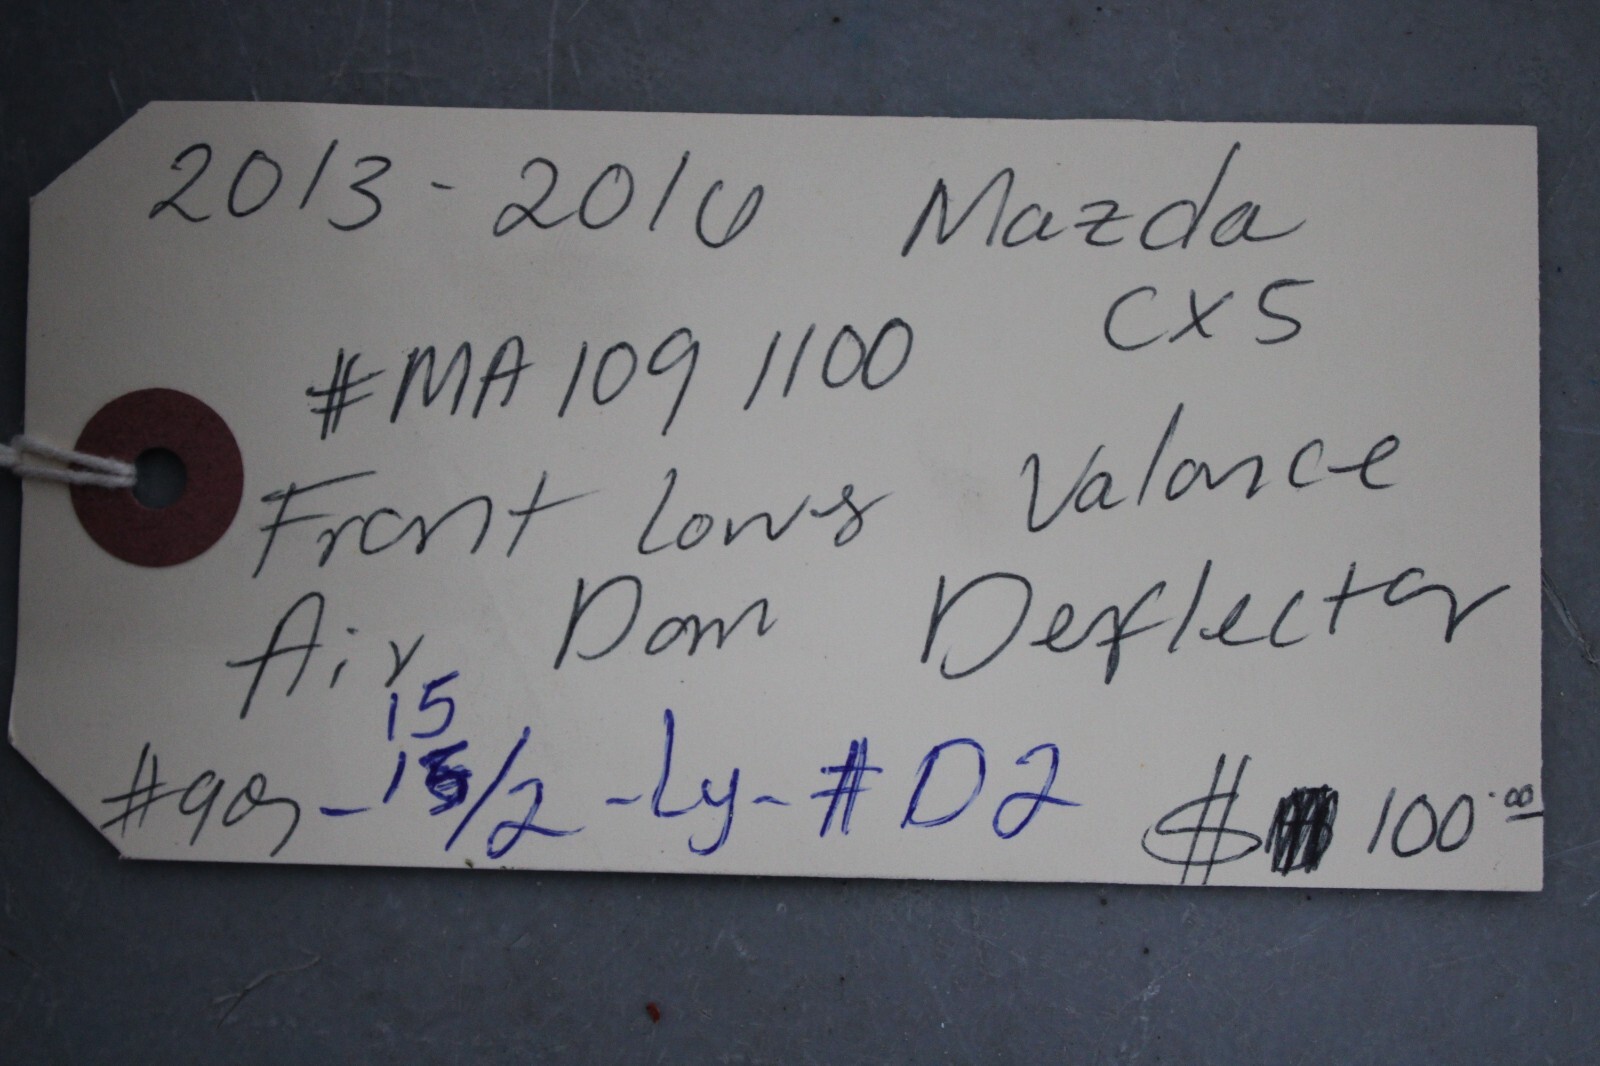 2013 - 2016 Mazda
CX5
#MA109 1100
Front Lower Valance
Air Dam Deflector
15
#909-15/2-Ly-#D2 $ 100.00